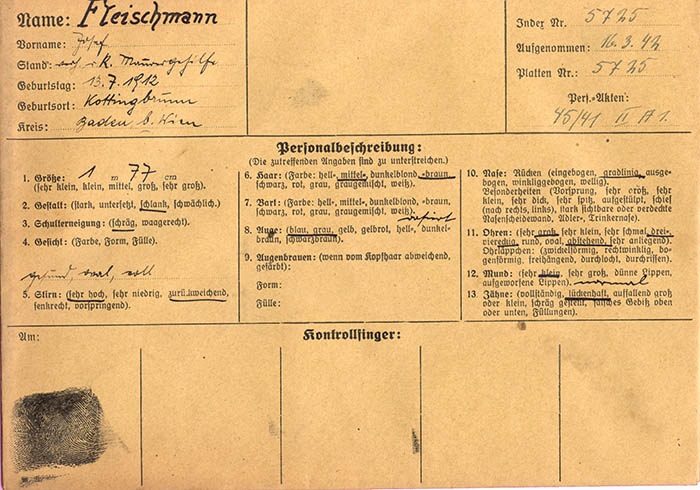 Name: Fleischmann
Vorname: Josef
Stand: r.k. Maurergehilfe
Geburtstag: 13.7.1912
Geburtsort: Kottingbrunn
Kreis: Baden b. Wien
Index Nr. 5725
Aufgenommen: 16.3.42
Platten Nr.: 5725
Pers.-Akten:
45/41 II A 1.
Personalbeschreibung:
(Die zutreffenden Angaben sind zu unterstreichen.)
1. Größe: 1 m 77 cm
(sehr klein, klein, mittel, groß, sehr groß).
2. Gestalt: (stark, untersetzt, schlank, schwächlich).
3. Schulterneigung: (schräg, waagerecht).
4. Gesicht: (Farbe, Form, Fülle).
gesund, oval, voll
5. Stirn: (sehr hoch, sehr niedrig, zurückweichend,
senkrecht, vorspringend).
6. Haar: (Farbe: hell-, mittel-, dunkelblond, -braun,
schwarz, rot, grau, graugemischt, weiß).
7. Bart: (Farbe: hell-, mittel-, dunkelblond, -braun,
schwarz, rot, grau, graugemischt, weiß).
rasiert
8. Auge: (blau, grau, gelb, gelbrot, hell-, dunkel-
braun, schwarzbraun).
9. Augenbrauen: (wenn vom Kopfhaar abweichend,
gefärbt):
Form:
Fülle:
10. Nase: Rücken (eingebogen, gradlinig, ausge-
bogen, winkliggebogen, wellig).
Besonderheiten (Vorsprung, sehr groß, sehr
klein, sehr dick, sehr spitz, aufgestülpt, schief
(nach rechts, links), stark sichtbare oder verdeckte
Nasenscheidewand, Adler-, Trinkernase).
11. Ohren: (sehr groß, sehr klein, sehr schmal, drei-,
viereckig, rund, oval, abstehend, sehr anliegend).
Ohrläppchen: (zwickelförmig, rechtwinklig, bo-
genförmig, freihängend, durchlocht, durchrissen).
12. Mund: (sehr klein, sehr groß, dünne Lippen,
aufgeworfene Lippen). normal
13. Zähne: (vollständig, lückenhaft, auffallend groß
oder klein, schräg gestellt, falsches Gebiß oben
oder unten, Füllungen).
Am:
Kontrollfinger: